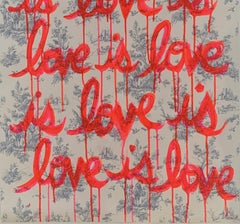 is love is
love is love
is love is
love is love